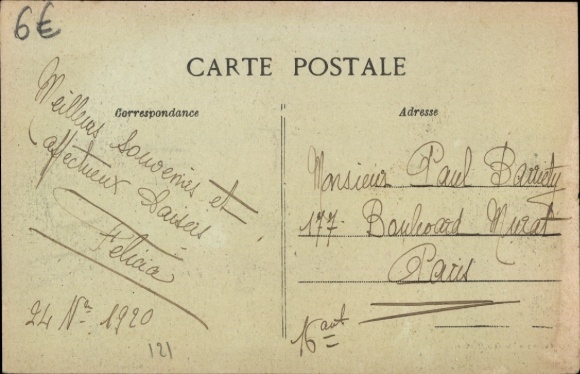 6€
CARTE POSTALE
Correspondance
Adresse
Meilleurs Souvenirs et
affectueux Baisers
Felicia
24 Nbre 1920
121
Monsieur Paul
177 Boulevard Murat
Paris